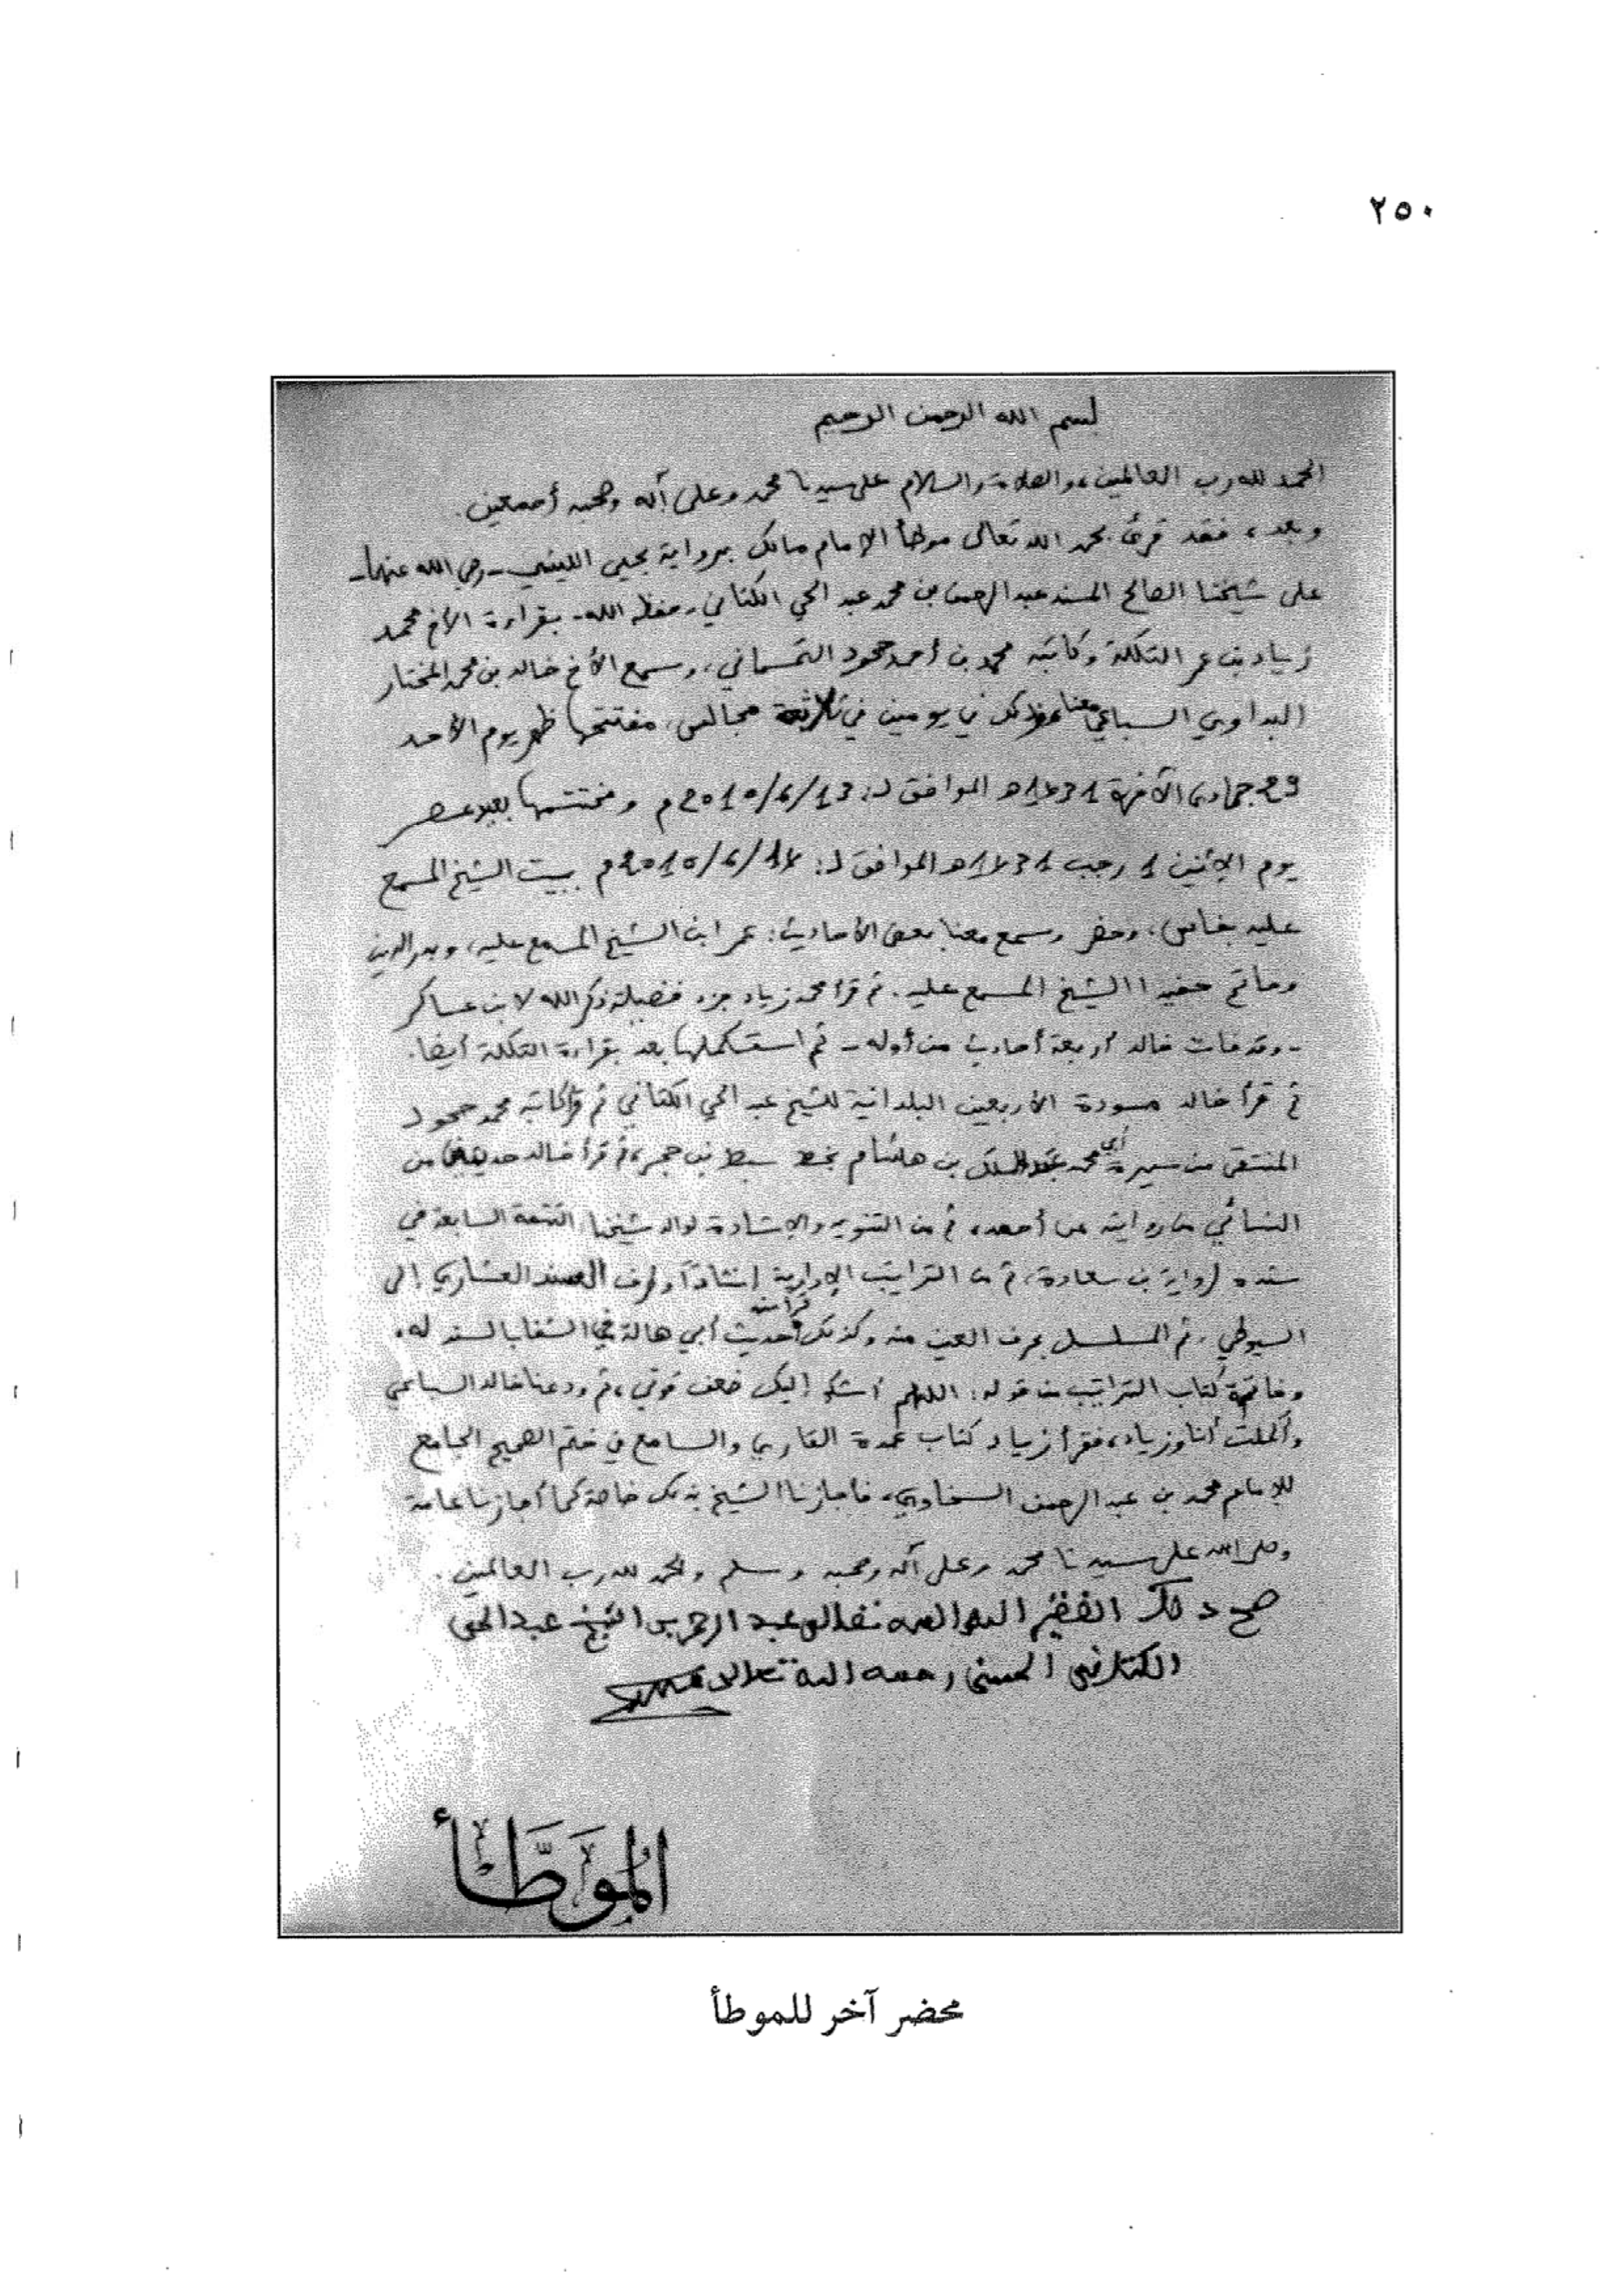 ٢٥٠
بسم الله الرحمن الرحيم
الحمد لله رب العالمين، والصلاة والسلام على سيدنا محمد وعلى آله وصحبه أجمعين.
وبعد، فقد قرئ بحمد الله تعالى موطأ الإمام مالك برواية يحيى الليثي - رضي الله عنهما -
على شيخنا الصالح المسند عبد الرحمن بن محمد عبد الحي الكتاني - حفظه الله - بقراءة الأخ محمد
زياد بن عمر التكلة وكاتبه محمد بن أحمد جحود التمسماني، وسمع الأخ خالد بن محمد المختار
البداوي السباعي معنا وذلك في يومين في ثلاثة مجالس، مفتتحها ظهر يوم الأحد
29 جمادى الآخرة 1431هـ الموافق لـ: 13/6/2010م ومختتمها بعيد عصر
يوم الإثنين 1 رجب 1431هـ الموافق لـ: 14/6/2010م ببيت الشيخ المسمع
عليه بفاس، وحضر وسمع معنا بعض الأحاديث: عمر ابن الشيخ المسمع عليه، وبدر الدين
وحاتم حفيدا الشيخ المسمع عليه. ثم قرأ محمد زياد جزء فضيلة ذكر الله لابن عساكر
- وقد فات خالد أربعة أحاديث من أوله - ثم استكملها بعد بقراءة التكلة أيضا.
ثم قرأ خالد مسودة الأربعين البلدانية للشيخ عبد الحي الكتاني ثم قرأ كاتبه محمد جحود
المنتقى من سيرة أبي محمد عبد الملك بن هشام بخط سبط بن حجر، ثم قرأ خالد من
النسائي من روايته عن أحمد، ثم من التنويه والإشادة لوالد شيخنا التتمة السابعة في
سنده لرواية بن سعادة، ثم من التراتيب الإدارية العشاري إلى
السيوطي، ثم المسلسل بحرف العين منه وكذلك قراءة حديث أبي هالة في الشفا بالسند له،
وخاتمة كتاب التراتيب من قوله: اللهم أشكو إليك ضعف قوتي، ثم ودعنا خالد السباعي
وأكملت أنا وزياد، فقرأ زياد كتاب عمدة القاري والسامع في ختم الصحيح الجامع
للإمام محمد بن عبد الرحمن السخاوي، فأجازنا الشيخ بذلك خاصة كما أجازنا عامة
وصلى الله على سيدنا محمد وعلى آله وصحبه وسلم والحمد لله رب العالمين.
صح ذلك الفقير إلى الله تعالى عبد الرحمن بن الشيخ عبد الحي
الكتاني الحسني رحمه الله تعالى
الموطأ
محضر آخر للموطأ